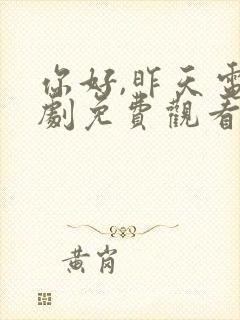 你好,昨天電
劇免費觀看
黃岗